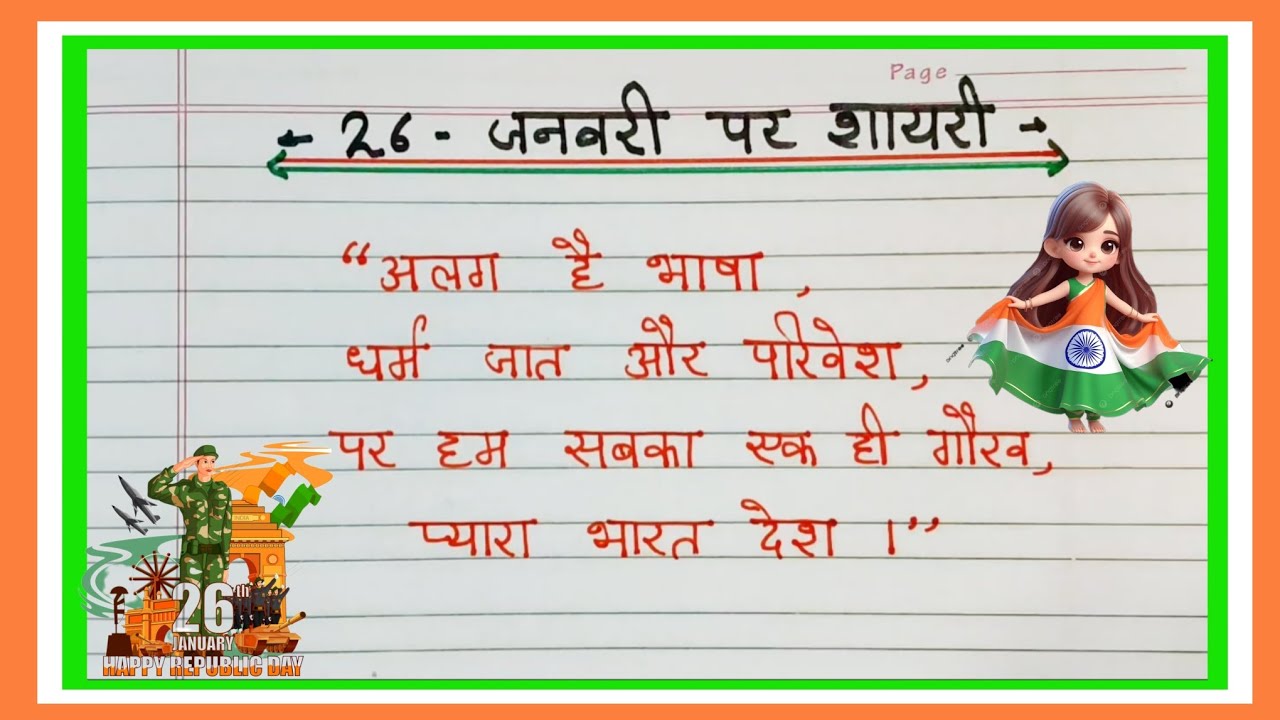 Page
- 26 - जनवरी पर शायरी -
“अलग है भाषा,
धर्म जात और परिवेश,
पर हम सबका एक ही गौरव,
प्यारा भारत देश ।”
INDIA
26th
JANUARY
HAPPY REPUBLIC DAY